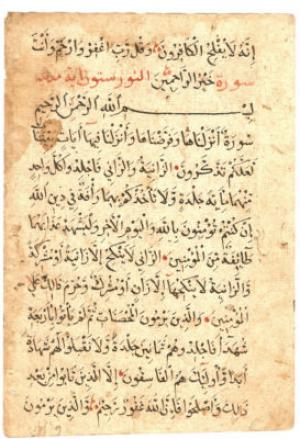 انه لا يفلح الكافرون وقل رب اغفر وارحم وانت
خير الراحمين سورة النور ستون اية مدنية
بسم الله الرحمن الرحيم
سورة انزلناها وفرضناها وانزلنا فيها ايات بينات
لعلكم تذكرون الزانية والزاني فاجلدوا كل واحد
منهما مائة جلدة ولا تأخذكم بهما رأفة في دين الله
ان كنتم تؤمنون بالله واليوم الاخر وليشهد عذابهما
طائفة من المؤمنين الزاني لا ينكح الا زانية او مشركة
والزانية لا ينكحها الا زان او مشرك وحرم ذلك على
المؤمنين والذين يرمون المحصنات ثم لم يأتوا باربعة
شهداء فاجلدوهم ثمانين جلدة ولا تقبلوا لهم شهادة
ابدا واولئك هم الفاسقون الا الذين تابوا من بعد
ذلك واصلحوا فان الله غفور رحيم والذين يرمون